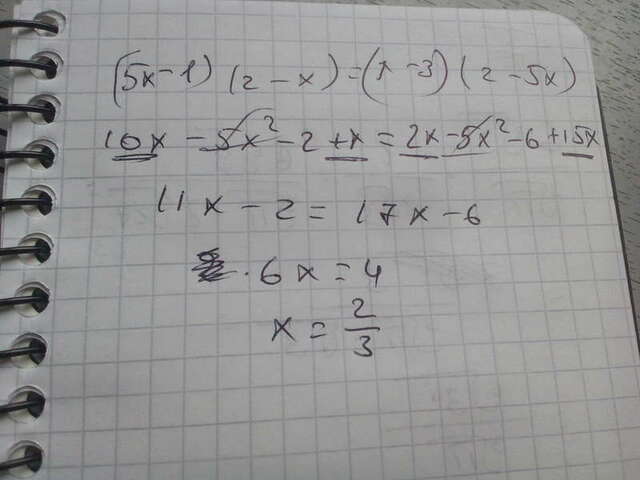 (5x-1) (2-x)=(x-3) (2-5x)
10x-5x²-2+x=2x-5x²-6+15x
11x-2=17x-6
6x=4
x=2/3